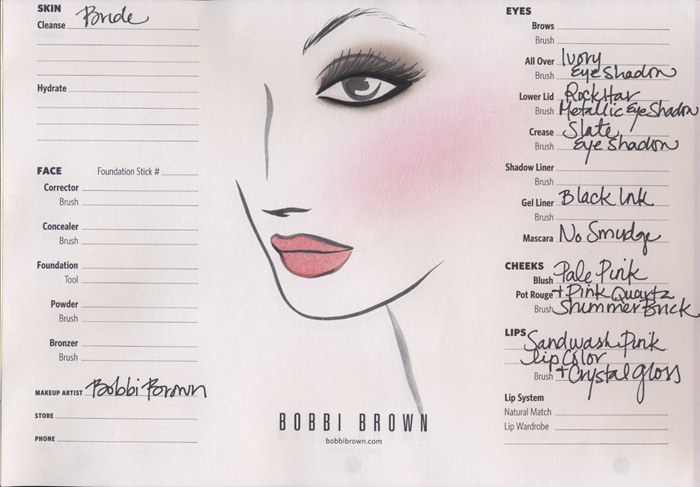 SKIN
Cleanse Bride
Hydrate
FACE Foundation Stick #
Corrector
Brush
Concealer
Brush
Foundation
Tool
Powder
Brush
Bronzer
Brush
MAKEUP ARTIST Bobbi Brown
STORE
PHONE
BOBBI BROWN
bobbibrown.com
EYES
Brows
Brush
All Over Ivory
Brush Eye Shadow
Lower Lid Rockstar
Brush Metallic Eye Shadow
Crease Slate
Brush Eye Shadow
Shadow Liner
Brush
Gel Liner Black Ink
Brush
Mascara No Smudge
CHEEKS
Blush Pale Pink
Pot Rouge + Pink Quartz
Brush Shimmer Brick
LIPS Sandwash Pink
Lip Color
Brush + Crystal gloss
Lip System
Natural Match
Lip Wardrobe